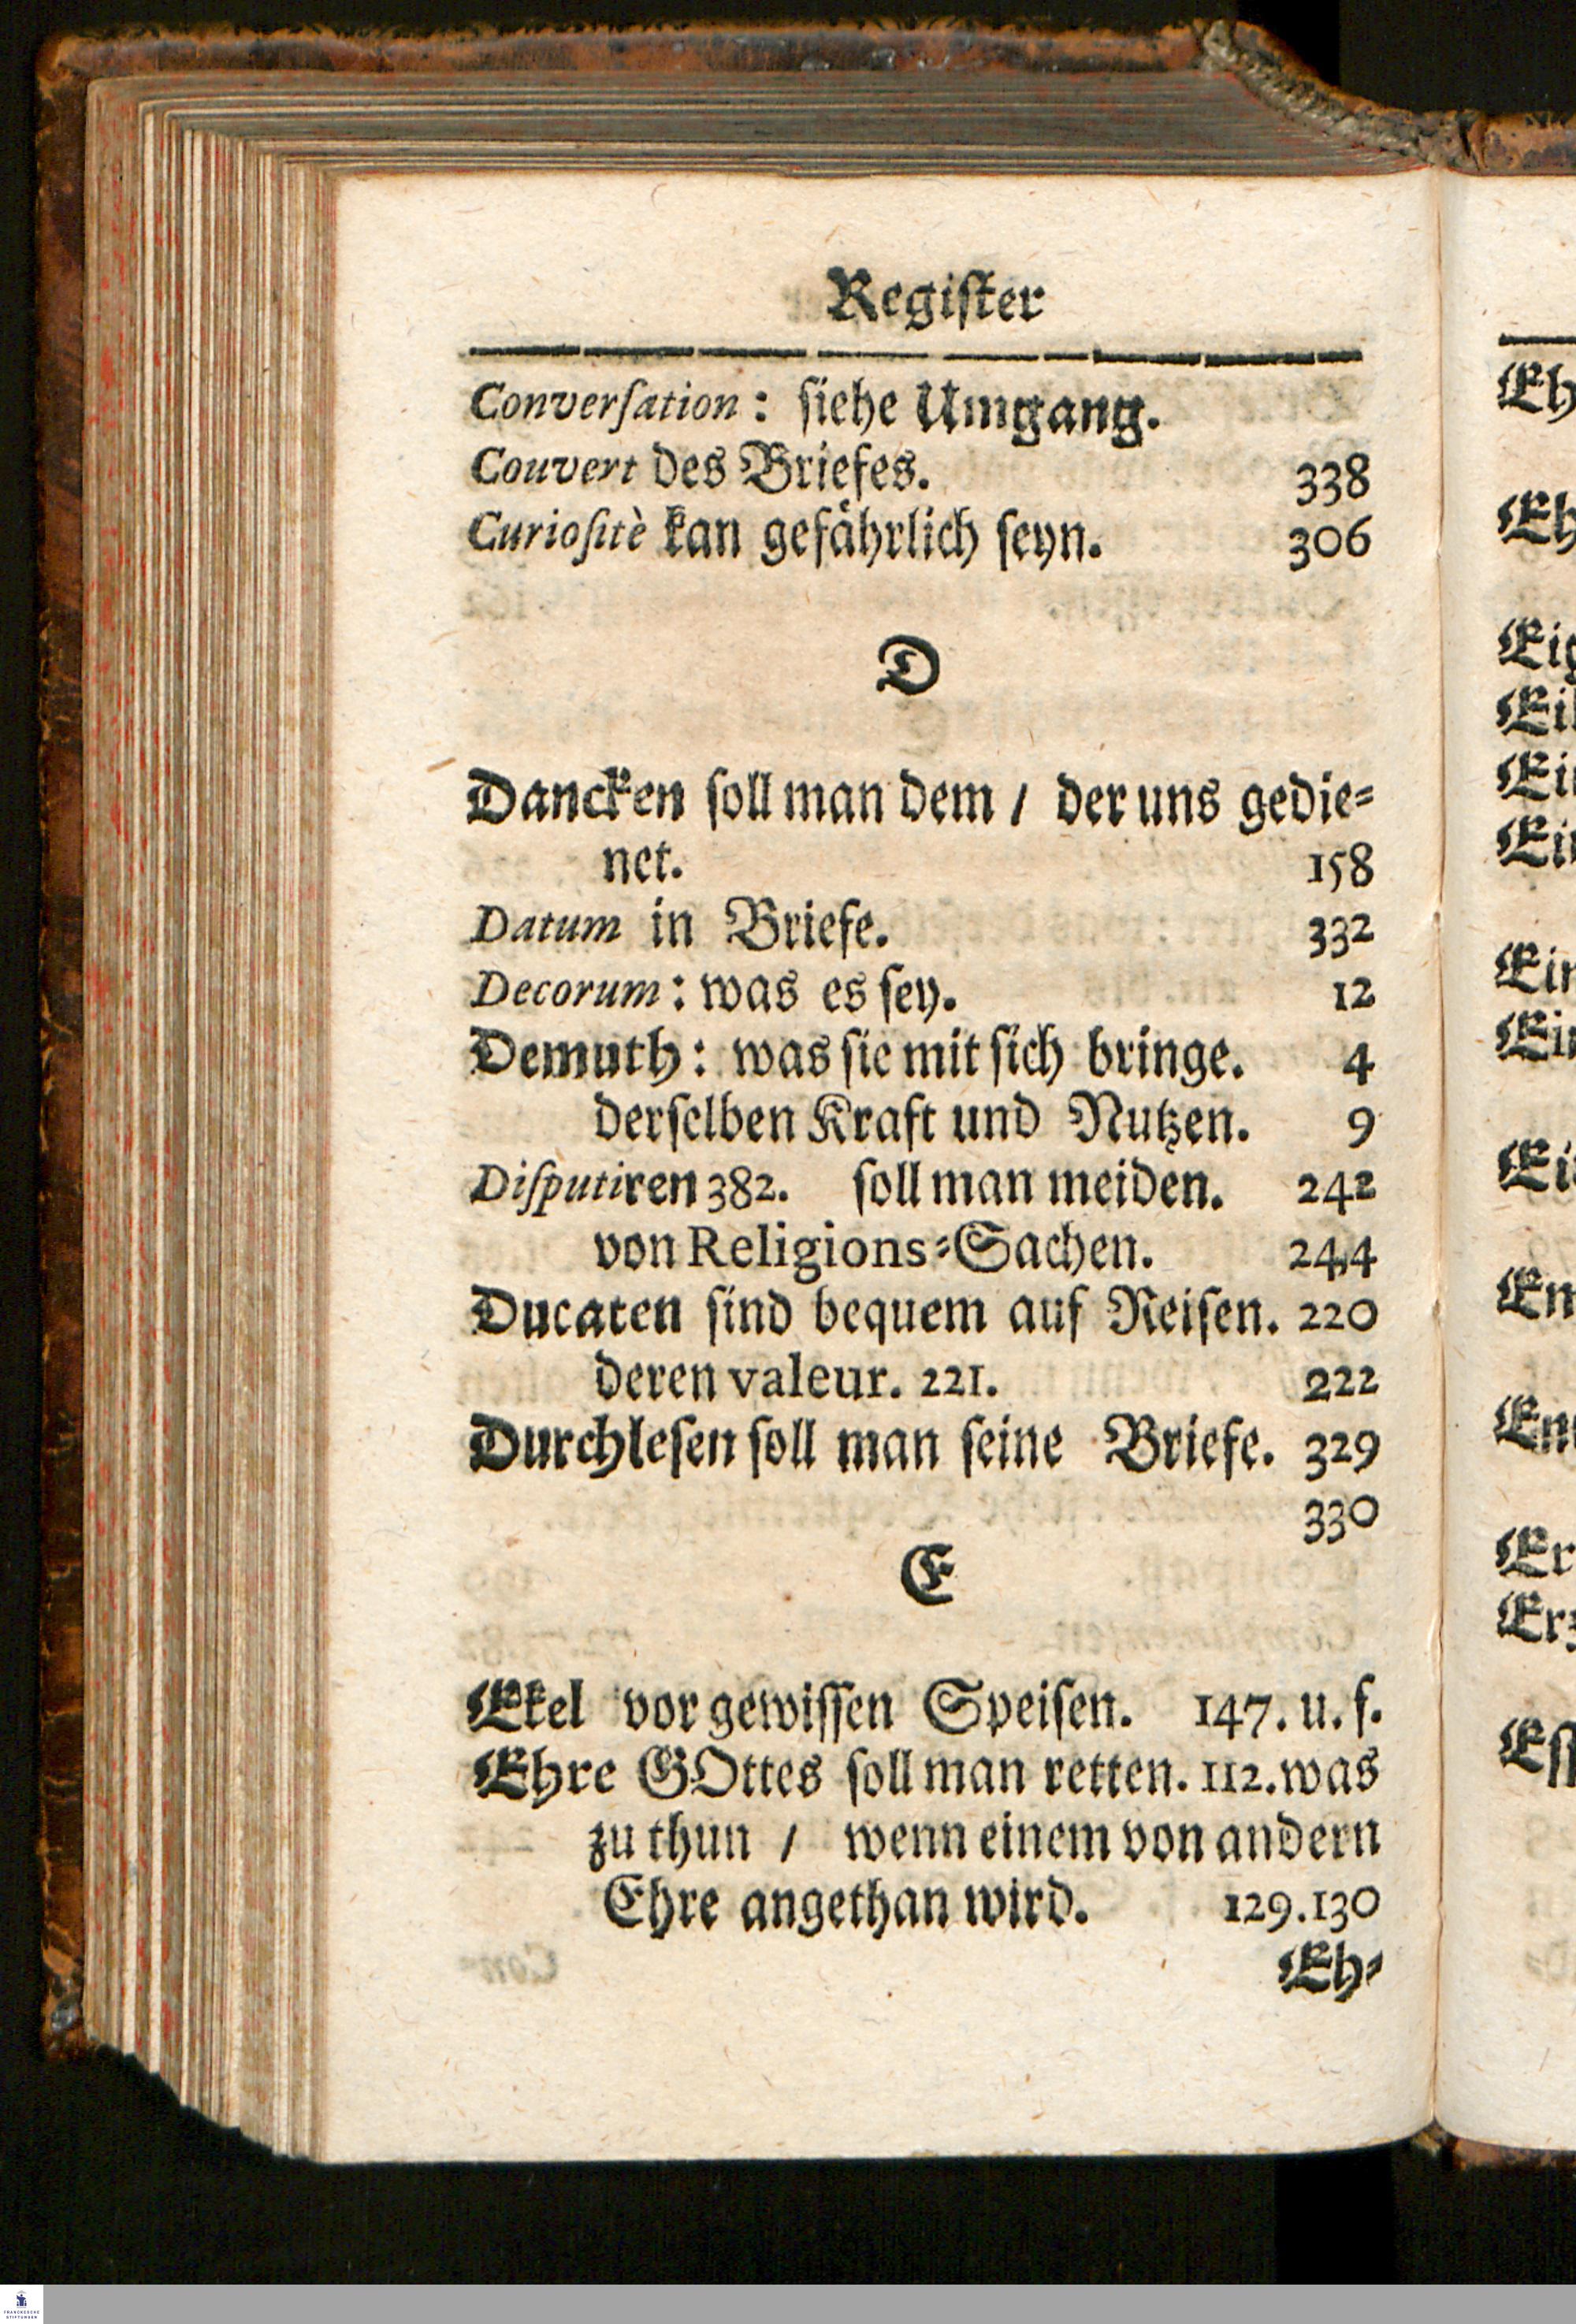 Register
Conversation: siehe Umgang.
Couvert des Briefes. 338
Curiositè kan gefährlich seyn. 306
D
Dancken soll man dem / der uns gedie-
net. 158
Datum in Briefe. 332
Decorum: was es sey. 12
Demuth: was sie mit sich bringe. 4
derselben Kraft und Nutzen. 9
Disputiren 382. soll man meiden. 242
von Religions-Sachen. 244
Ducaten sind bequem auf Reisen. 220
deren valeur. 221. 222
Durchlesen soll man seine Briefe. 329
330
E
Ekel vor gewissen Speisen. 147. u. f.
Ehre GOttes soll man retten. 112. was
zu thun / wenn einem von andern
Ehre angethan wird. 129. 130
Eh-